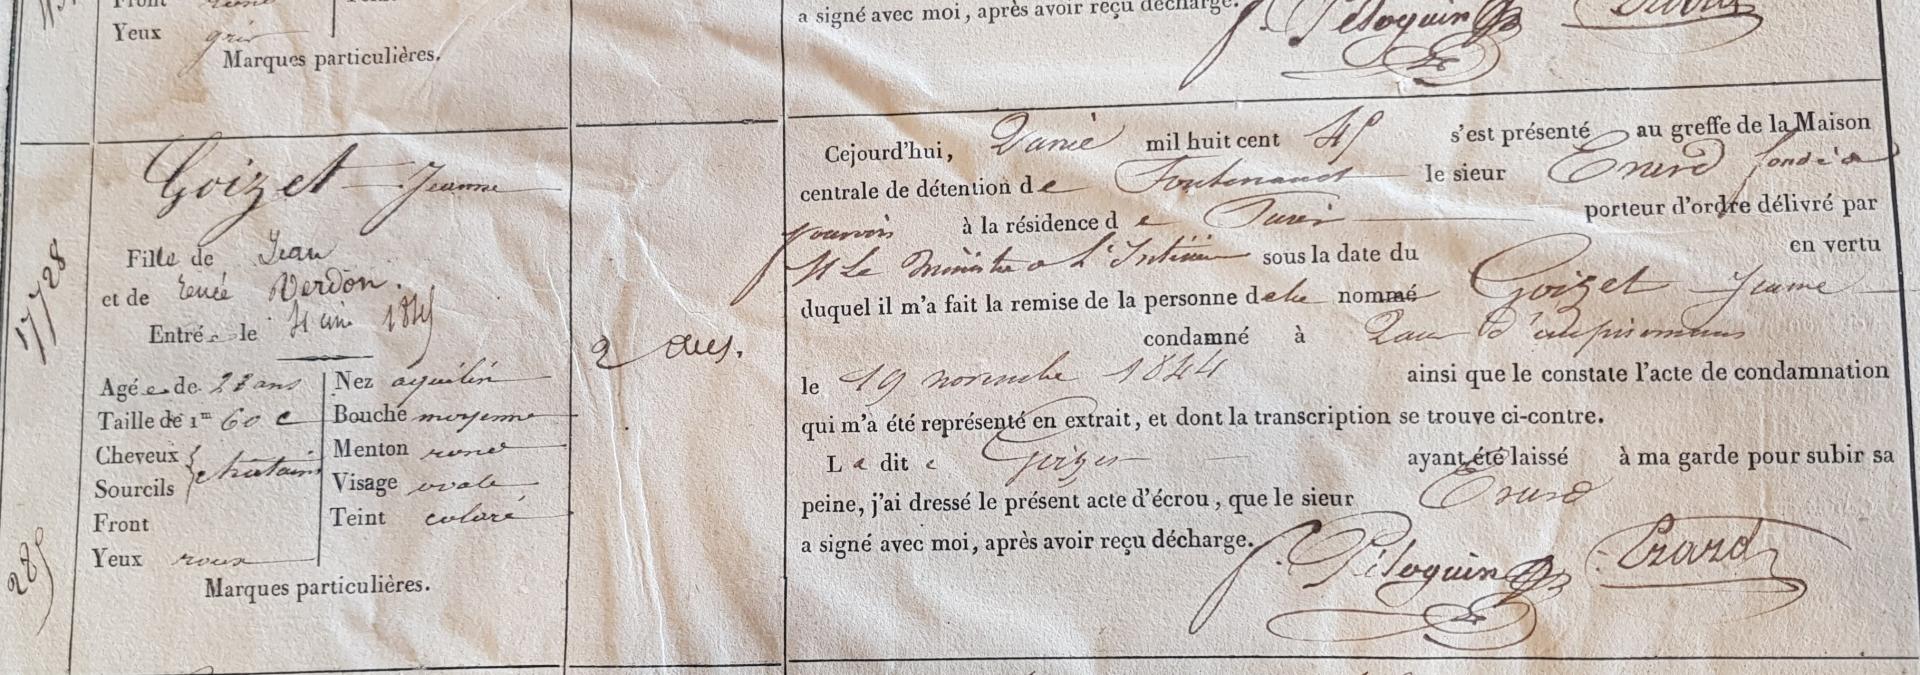 Yeux gris
Marques particulières.
a signé avec moi, après avoir reçu décharge. Péloquin Erard
17728
285
Goizet Jeanne
Fille de Jean
et de Renée Verdon.
Entrée le 1845
Agée de 28 ans
Taille de 1m 60 c
Cheveux
Sourcils châtains
Front
Yeux roux
Nez aquilin
Bouche moyenne
Menton rond
Visage ovale
Teint coloré
Marques particulières.
2 ans.
Cejourd'hui, mil huit cent 45 s'est présenté au greffe de la Maison
centrale de détention de le sieur Erard fondé de
pouvoirs à la résidence de Paris porteur d'ordre délivré par
Mr Le Ministre de l'Intérieur sous la date du en vertu
duquel il m'a fait la remise de la personne de la nommé Goizet Jeanne
condamné à 2 ans d'emprisonnement
le 19 novembre 1844 ainsi que le constate l'acte de condamnation
qui m'a été représenté en extrait, et dont la transcription se trouve ci-contre.
La dite Goizet ayant été laissé à ma garde pour subir sa
peine, j'ai dressé le présent acte d'écrou, que le sieur Erard
a signé avec moi, après avoir reçu décharge. Péloquin Erard